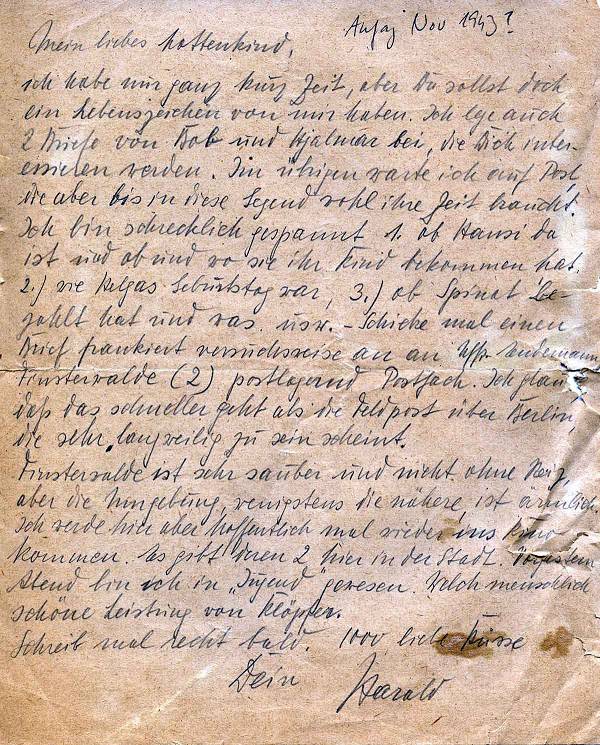 Anfang Nov 1943?
Mein liebes Kattenkind,
ich habe nur ganz kurz Zeit, aber Du sollst doch
ein Lebenszeichen von mir haben. Ich lege auch
2 Briefe von Bob und Hjalmar bei, die Dich inter-
essieren werden. Im übrigen warte ich auf Post,
die aber bis in diese Gegend wohl ihre Zeit braucht.
Ich bin schrecklich gespannt 1. ob Hansi da
ist und ob und wo sie ihr Kind bekommen hat.
2.) wie Helgas Geburtstag war, 3.) ob Spinat be-
zahlt hat und was. usw. – Schicke mal einen
Brief frankiert versuchsweise an an Uffz.
Finsterwalde (2) postlagernd Postfach. Ich glau
daß das schneller geht als die Feldpost über Berlin,
die sehr langweilig zu sein scheint.
Finsterwalde ist sehr sauber und nicht ohne Reiz,
aber die Umgebung, wenigstens die nähere, ist ärmlich.
Ich werde hier aber hoffentlich mal wieder ins Kino
kommen. Es gibt deren 2 hier in der Stadt. Vorgestern
Abend bin ich in „Jugend" gewesen. Welch menschlich
schöne Leistung von Klöpfer.
Schreib mal recht bald. 1000 liebe Küsse
Dein Harald